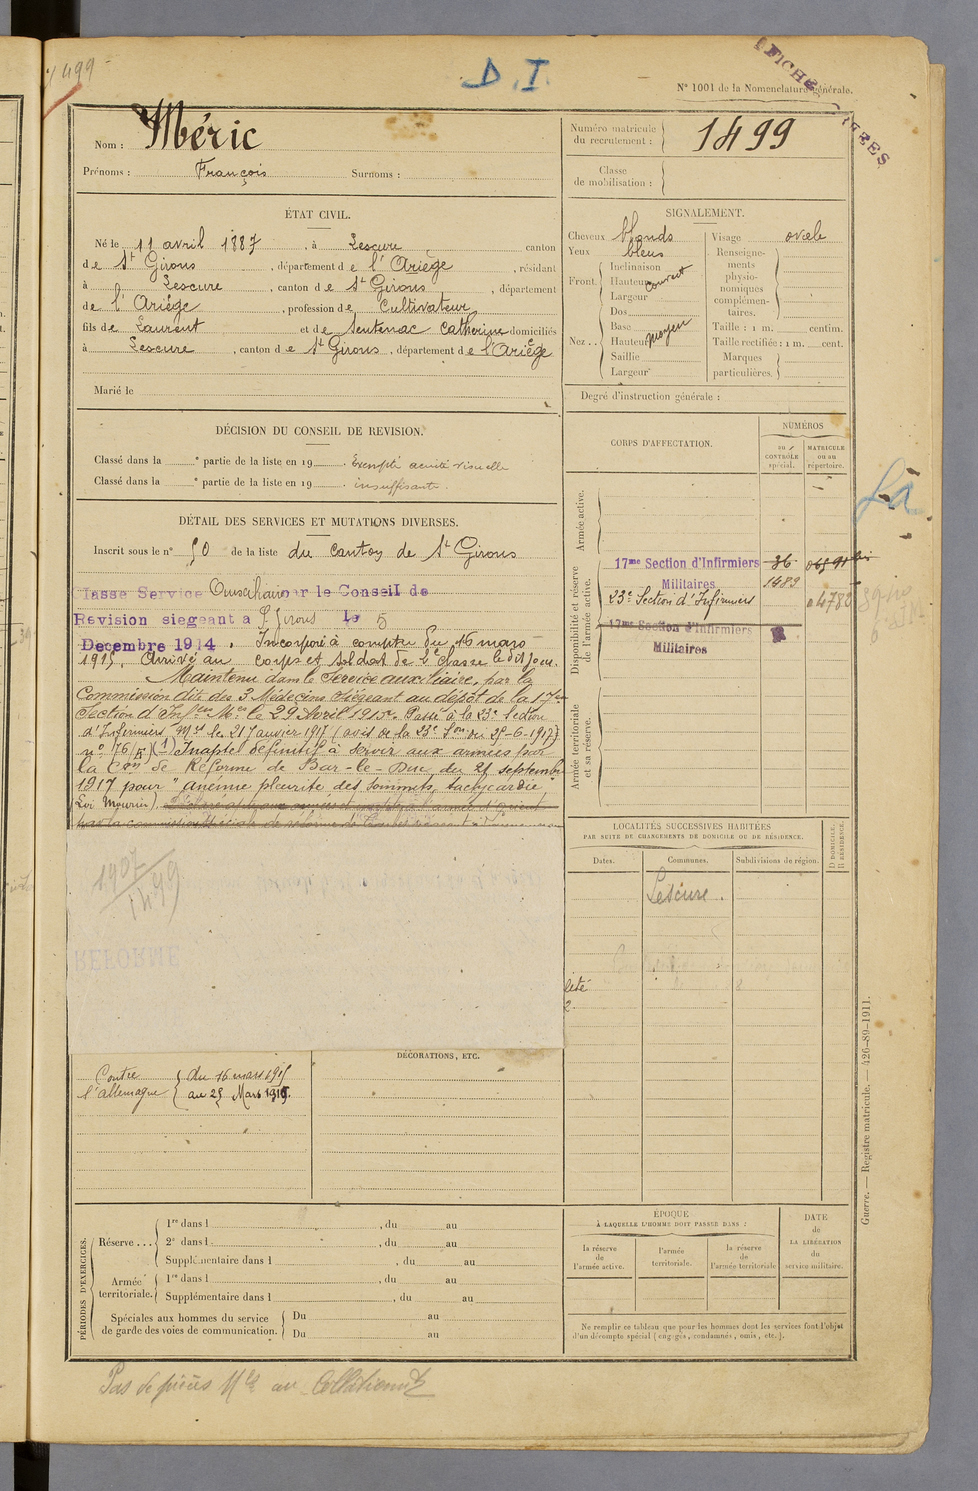 1499
D.I.
N° 1001 de la Nomenclature générale.
Nom : Méric
Prénoms : François Surnoms :
Numéro matricule du recrutement : 1499
Classe de mobilisation :
ÉTAT CIVIL.
Né le 11 avril 1887, à Lescure, canton
de St Girons, département de l'Ariège, résidant
à Lescure, canton de St Girons, département
de l'Ariège, profession de Cultivateur
fils de Laurent et de Sentenac Catherine domiciliés
à Lescure, canton de St Girons, département de l'Ariège
Marié le
SIGNALEMENT.
Cheveux blonds
Yeux bleus
Front. Inclinaison
Hauteur couvert
Largeur
Nez.. Dos
Base moyen
Hauteur
Saillie
Largeur
Visage ovale
Renseignements physionomiques complémentaires.
Taille : 1 m. centim.
Taille rectifiée : 1 m. cent.
Marques particulières.
Degré d'instruction générale :
DÉCISION DU CONSEIL DE REVISION.
Classé dans la e partie de la liste en 19 . Exempté acuité visuelle
Classé dans la e partie de la liste en 19 . insuffisante.
DÉTAIL DES SERVICES ET MUTATIONS DIVERSES.
Inscrit sous le n° 50 de la liste du canton de St Girons
lasse Service Auxiliaire par le Conseil de
Revision siegeant a St Girons Le 5
Decembre 1914. Incorporé à compter du 16 mars
1915. Arrivé au corps et soldat de 2e classe le dit jour.
Maintenu dans le Service auxiliaire, par la
Commission dite des 3 Médecins siégeant au dépôt de la 17me
Section d'Infers Mres le 29 Avril 1915. Passé à la 23e Section
d'Infirmiers Mres le 21 Janvier 1917 (avis de la 23e Son du 25-6-1917)
no 76/E) (1) Inapte définitif à servir aux armées par
la Con de Réforme de Bar-le-Duc du 25 septembre
1917 pour "anémie pleurite des sommets, tachycardie
1907
1499
REFORME
CORPS D'AFFECTATION.
NUMÉROS
au CONTRÔLE spécial.
MATRICULE ou au répertoire.
Armée active.
Disponibilité et réserve de l'armée active.
Armée territoriale et sa réserve.
17me Section d'Infirmiers Militaires 36
1483
23e Section d'Infirmiers 4782
17me Section d'Infirmiers
Militaires
LOCALITÉS SUCCESSIVES HABITÉES
PAR SUITE DE CHANGEMENTS DE DOMICILE OU DE RÉSIDENCE.
Dates. Communes. Subdivisions de région. D DOMICILE. R RÉSIDENCE.
Lescure.
DÉCORATIONS, ETC.
Contre l'allemagne du 16 mars 1915
au 25 Mars 1919.
PÉRIODES D'EXERCICES.
Réserve... 1re dans l , du au
2e dans l , du au
Supplémentaire dans l , du au
Armée territoriale. 1re dans l , du au
Supplémentaire dans l , du au
Spéciales aux hommes du service de garde des voies de communication. Du au
Du au
ÉPOQUE
À LAQUELLE L'HOMME DOIT PASSER DANS :
la réserve de l'armée active.
l'armée territoriale.
la réserve de l'armée territoriale
DATE de LA LIBÉRATION du service militaire.
Ne remplir ce tableau que pour les hommes dont les services font l'objet
d'un décompte spécial (engagés, condamnés, omis, etc.).
Guerre. — Registre matricule. — 426-89-1911.
Pas de pièces